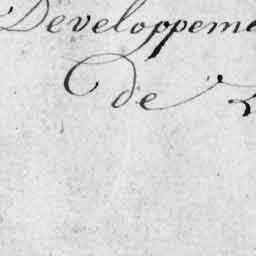 Developpeme
de